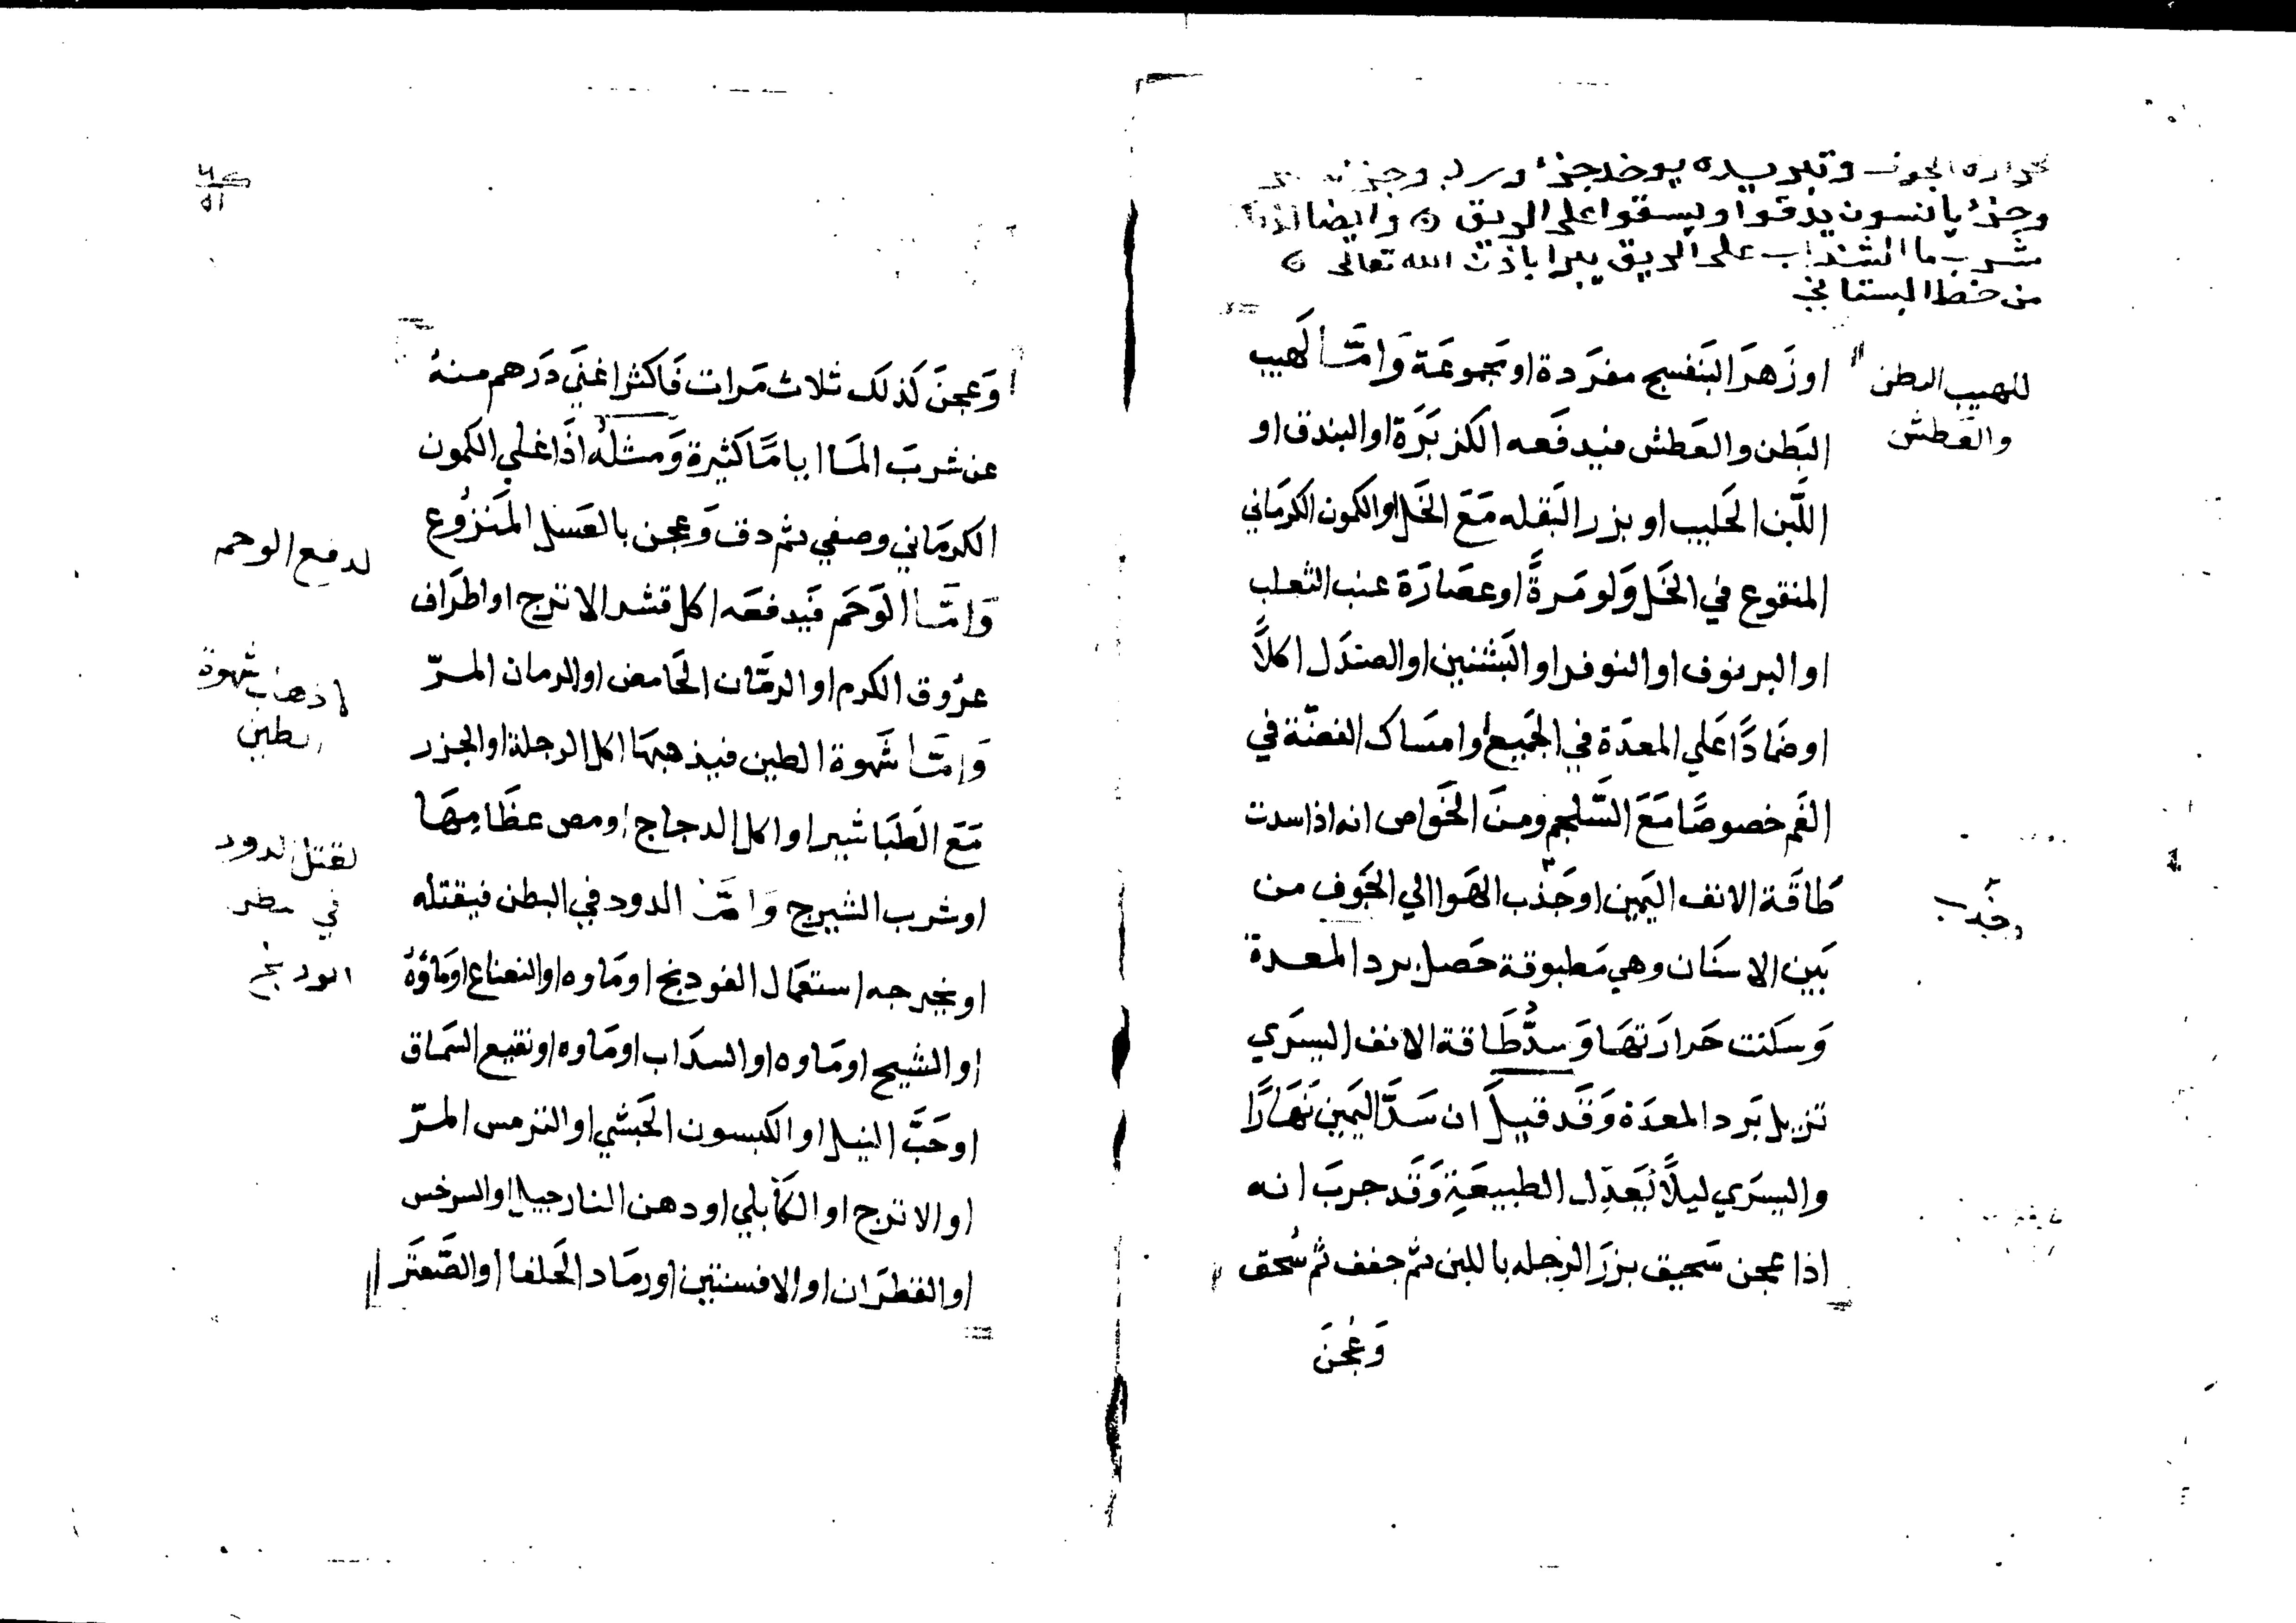 الجوف وتبريده يوخد جزء ورد وجزء
وجزء يانسون يدقوا ويسقوا على الريق وايضا
شرب ما الشنداب على الريق يبرا باذن الله تعالى
من خط البستاني
للهيب البطن
والعطش
او زَهرَ البَنفسج مفرَدة او مجموعَة وَامَّا لَهيب
البَطن والعَطش فيدفعه الكزبَرَة او البندق او
اللَّبن الحَليب او بزر البَقله مَعَ الخَل او الكمون الكرمَاني
المنقوع في الخَل وَلو مَرةً او عصَارَة عنب الثعلب
او البرنوف او النوفر او البَشنين او الصندَل اكلاً
او ضمَادًا عَلي المعدَة في الجَميع او امسَاك الفضّة في
الفَم خصوصًا مَعَ السَّلجم ومنَ الخَواص انه اذا سدت
طَاقَة الانف اليَمين او جَذب الهَوا الي الجَوف من
وجَذب
بَين الاسنَان وهي مَطبوقة حَصل برد المعدة
وَسكنت حَرارَتهَا وَسدُّ طَاقة الانف اليسرَي
تزيل بَرد المعدَة وَقَد قيلَ ان سَدَّ اليَمين نهَارًا
واليسرَي ليلاً يُعَدِل الطبيعَةِ وَقَد جربَ انه
اذا عجن سَحيق بزرَ الرجله باللبن ثم جفف ثم سُحق
وَعُجنَ
وَعجنَ كَذلكَ ثلاث مَرات فَاكثر اغنَي دَرهم منهُ
عن شربَ المَا ايامًا كَثيرة وَمثلهُ اذا غلي الكمون
الكرمَاني وصفي ثم دق وَعجن بالعَسل المَنزُوع
لدفع الوحم
وَامَّا الوَحَم فَيدفعَه اكل قشر الاترج او اطرَاف
عرُوق الكرم او الرمَّان الحَامض او الرمان المرّ
لاذهاب شهوة
الطين
وَامَّا شَهوة الطين فيذهبهَا اكل الرجلة او الجزر
مَعَ الطَبَاشير او اكل الدجاج او مص عظَامِهَا
لقتل الدود
في
او شرب الشيرج وَامَّا الدود في البطن فيقتله
او يخرجه استعمَال الفودنج او مَاوه او النعناع او مَاؤهُ
او الشيح او مَاوه او السدَاب او مَاوه او نقيع السَماق
او حَبَّ النيل او الكبسون الحَبشي او الترمس المرّ
او الاترج او الكَابلي او دهن النارجيل او السرخس
او القطرَان او الافسنتين او رمَاد الحَلفا او الصَّعتَر